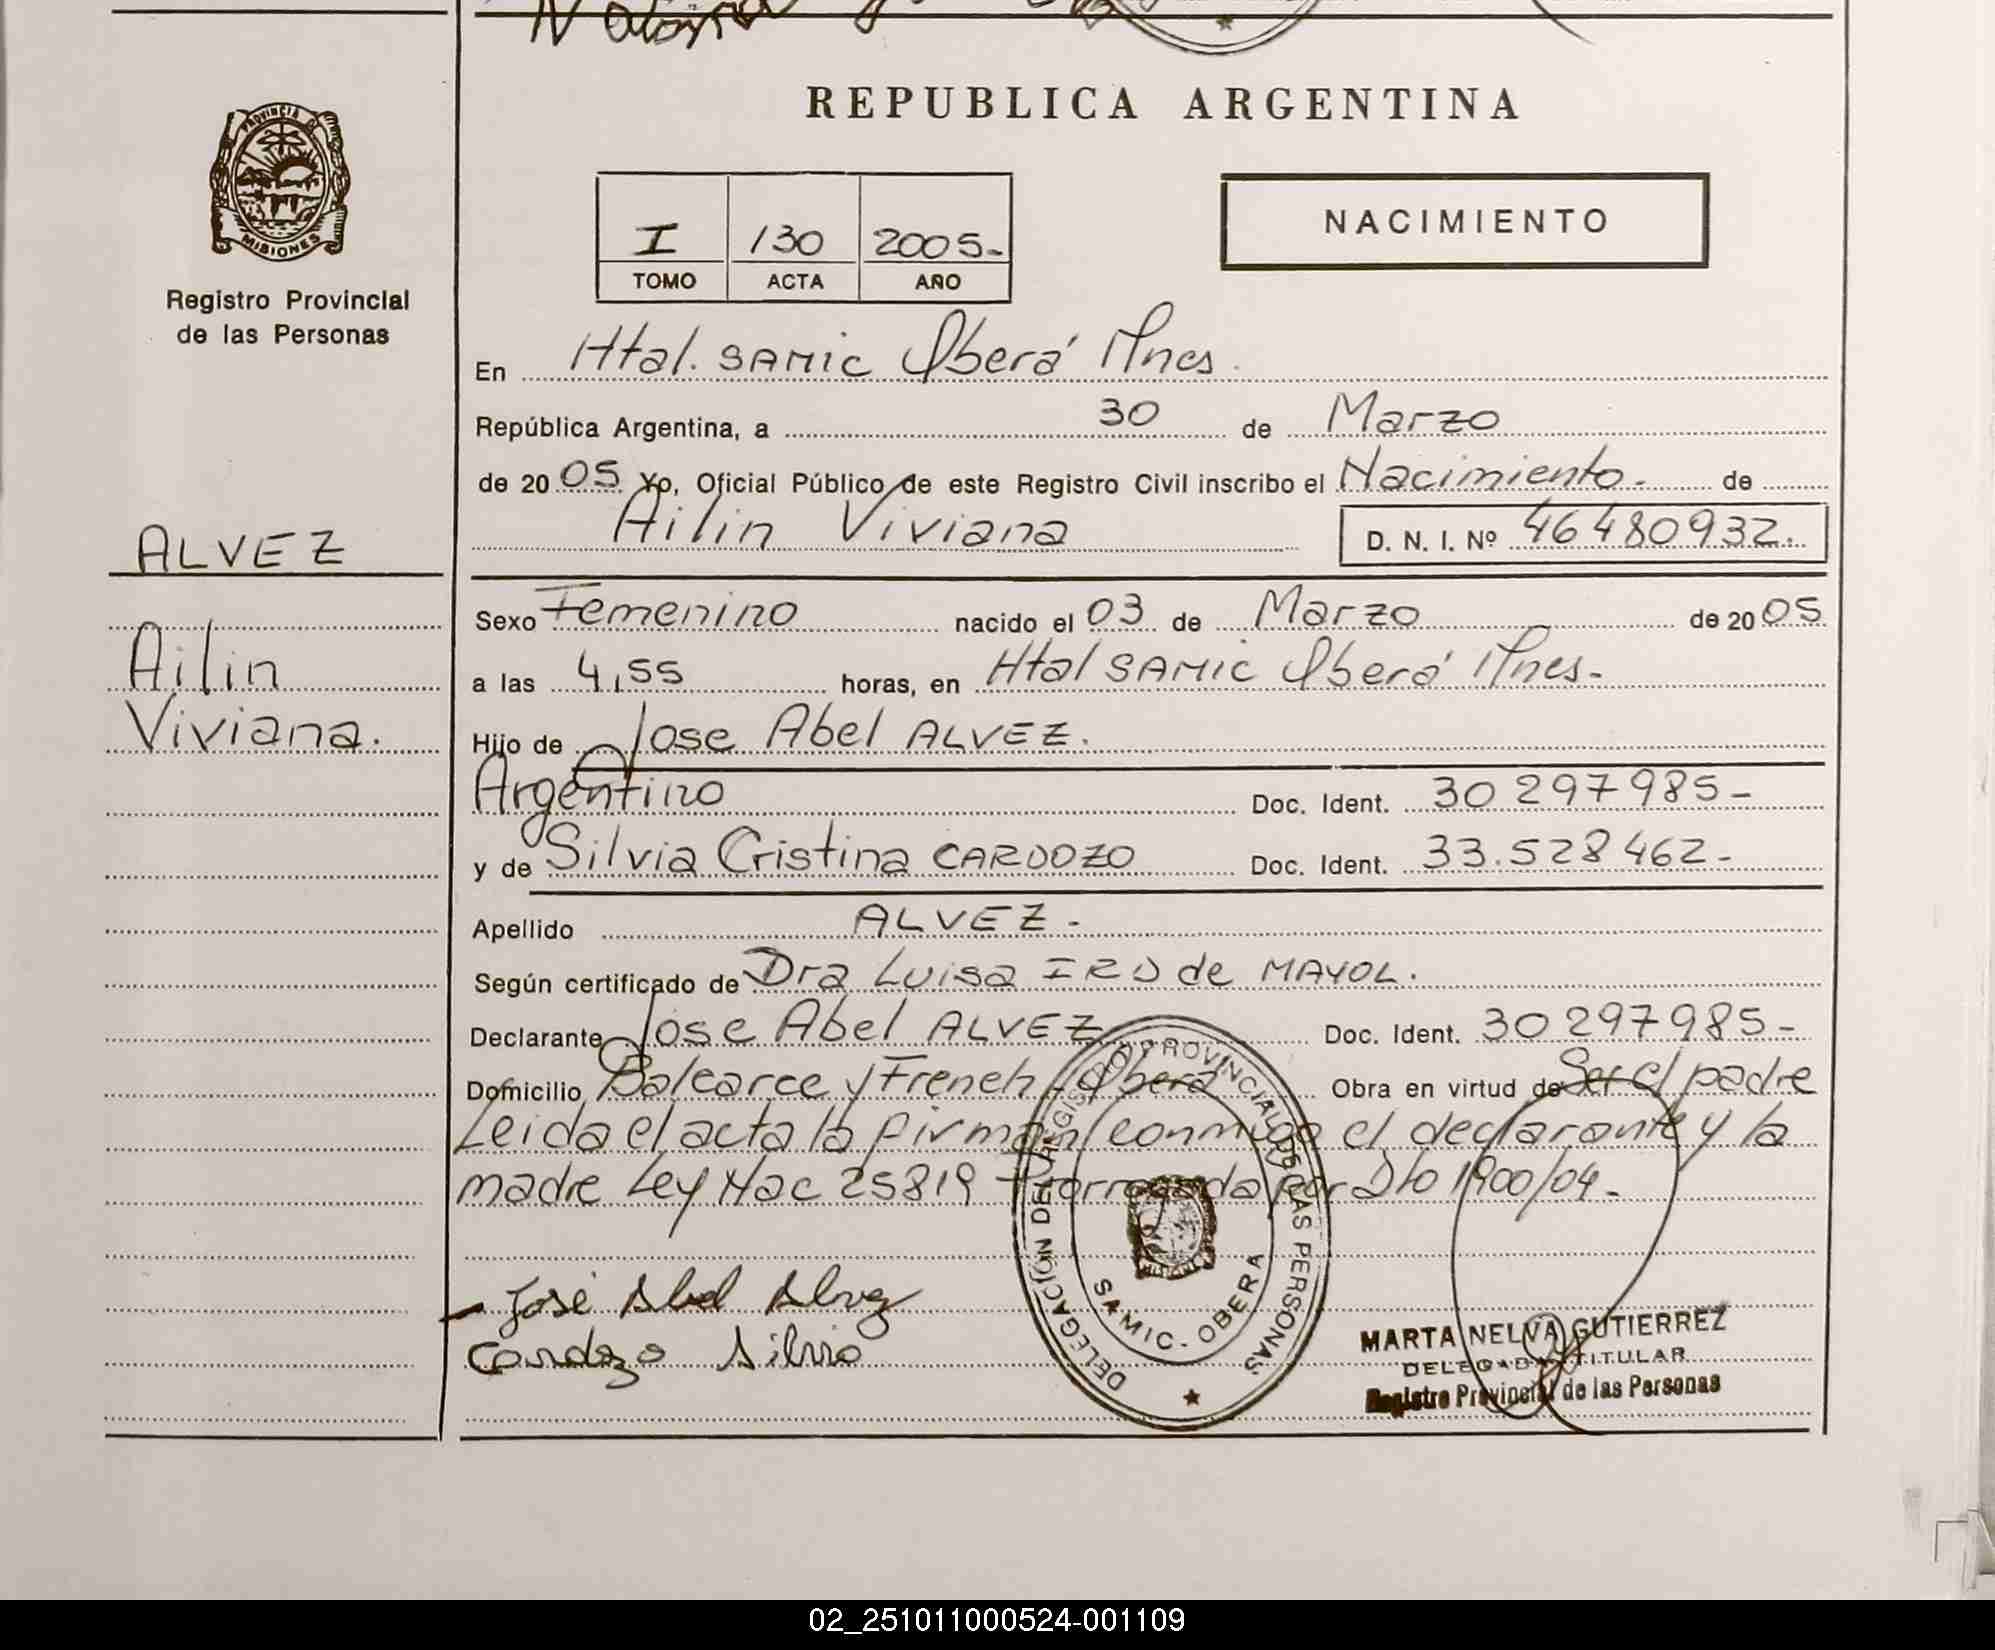 REPUBLICA ARGENTINA
PROVINCIA DE
MISIONES
Registro Provincial
de las Personas
I 130 2005-
TOMO ACTA AÑO
NACIMIENTO
En Htal. SAMIC Oberá Mnes.
República Argentina, a 30 de Marzo
de 2005 Yo, Oficial Público de este Registro Civil inscribo el Nacimiento. de
Ailin Viviana D. N. I. Nº 46480932.
ALVEZ
Ailin
Viviana.
Sexo Femenino nacido el 03 de Marzo de 2005
a las 4,55 horas, en Htal SAMIC Oberá Mnes.
Hijo de Jose Abel ALVEZ.
Argentino Doc. Ident. 30 297985-
y de Silvia Cristina CARDOZO Doc. Ident. 33.528462-
Apellido ALVEZ.
Según certificado de Dra Luisa IRO de MAYOL.
Declarante Jose Abel ALVEZ Doc. Ident. 30 297985-
Domicilio Balcarce y French - Oberá Obra en virtud de Ser el padre
Leida el acta la firman conmigo el declarante y la
madre Ley Nac 25819 Prorrogada por Dto 1900/04-
José Abel Alvez
Cardozo Silvia
DELEGACIÓN DEL REGISTRO PROVINCIAL DE LAS PERSONAS
SAMIC - OBERA
MARTA NELVA GUTIERREZ
DELEGADA TITULAR
Registro Provincial de las Personas
02_251011000524-001109